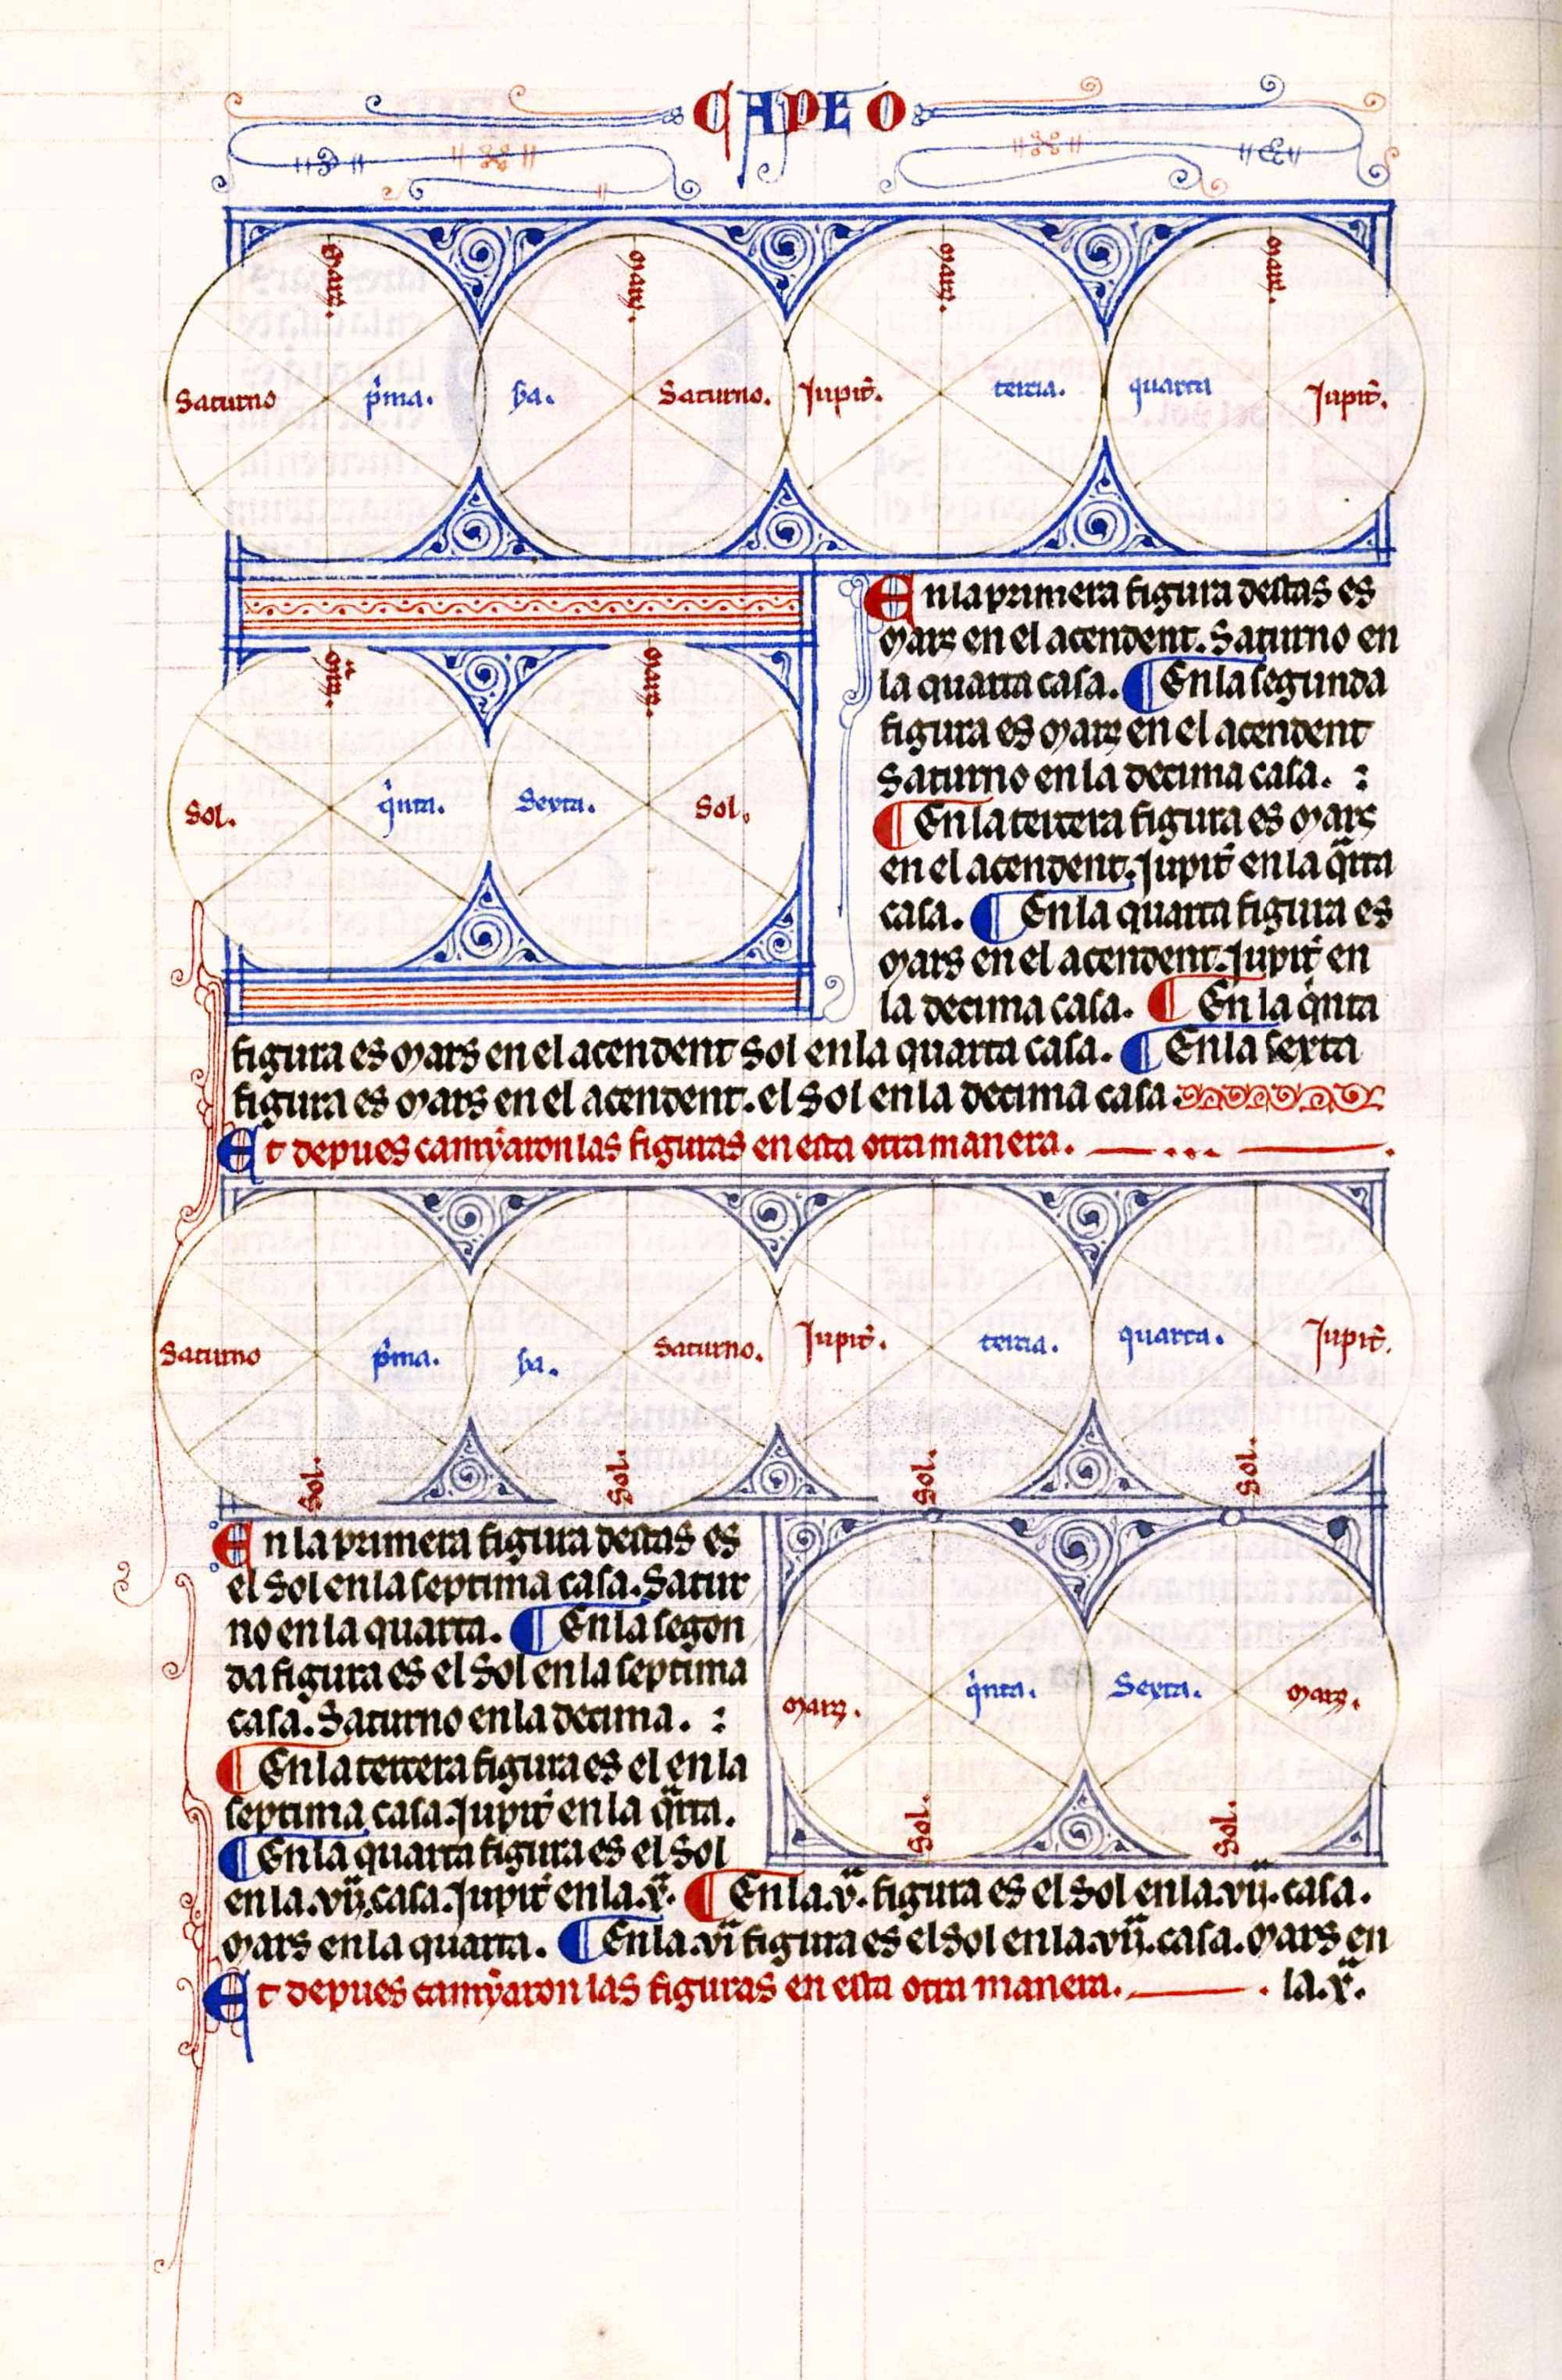 CAPLO
Marz. Marz. Marz. Marz.
Saturno p̃ma. ẜa. Saturno. Jupit̃. tercia. quarta Jupit̃.
Marz. Marz.
Sol. q̃nta. Sexta. Sol.
En la primera figura destas es
Marz en el acendent. Saturno en
la quarta casa. ¶ En la segunda
figura es Marz en el acendent
Saturno en la decima casa. :
¶ En la tercera figura es Marz
en el acendent. Jupit̃ en la q̃rta
casa. ¶ En la quarta figura es
Mars en el acendent. Jupit̃ en
la decima casa. ¶ En la q̃nta
figura es Mars en el acendent Sol en la quarta casa. ¶ En la sexta
figura es Mars en el acendent. el Sol en la decima casa.
Et depues camyaron las figuras en esta otra manera.
Saturno p̃ma. ẜa. Saturno. Jupit̃. tercia. quarta. Jupit̃.
Sol. Sol. Sol. Sol.
En la primera figura destas es
el Sol en la septima casa. Satur
no en la quarta. ¶ En la segon
da figura es el Sol en la septima
casa. Saturno en la decima. :
¶ En la tercera figura es el en la
septima casa. Jupit̃ en la q̃rta.
¶ En la quarta figura es el Sol
Marz. q̃nta. Sexta. Marz.
Sol. Sol.
en la .vij. casa. Jupit̃ en la .xª. ¶ En la .vª. figura es el Sol en la .vijª. casa.
Mars en la quarta. ¶ En la .viª figura es el Sol en la .vijª. casa. Mars en
la .xª.
Et depues camyaron las figuras en esta otra manera.